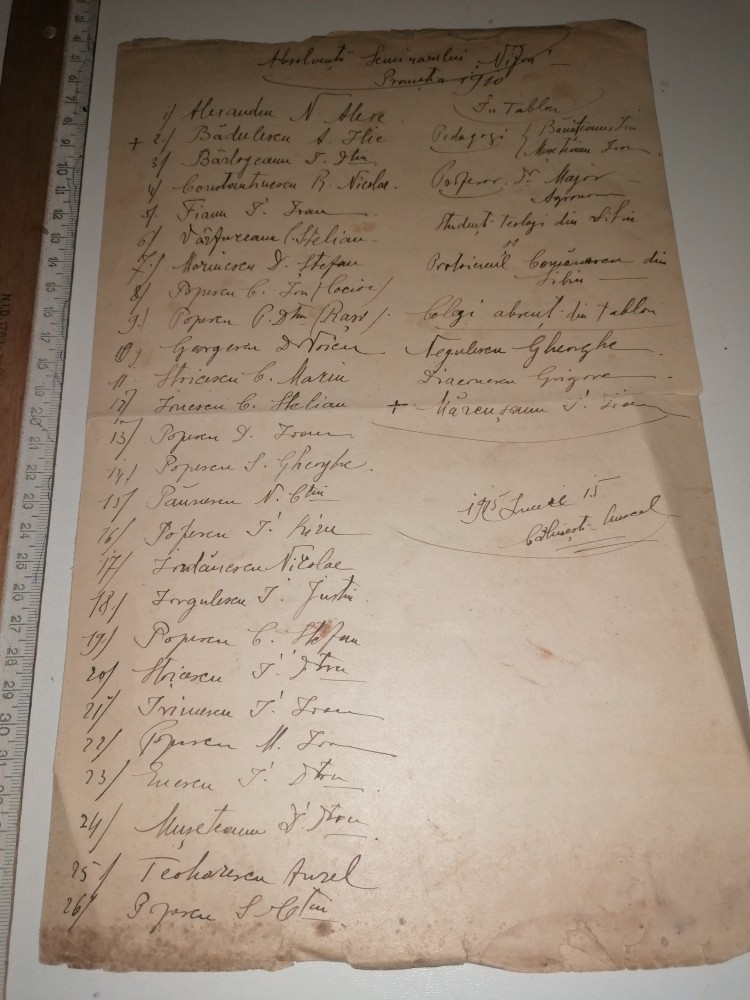 Absolvenți Seminarului "Nifon"
Promoția 1910
1/ Alexandru N. Alexe
+ 2/ Bădulescu A. Ilie
3/ Bârlogeanu I. Dtru
4/ Constantinescu R. Nicolae.
5/ Fianu I. Ioan
6/ Vărzăreanu C. Stelian
7/ Marinescu D. Ștefan
8/ Popescu C. Ion (Cocioc)
9/ Popescu P. Dtru (Rași)
10/ Georgescu D. Voicu
11 Stoicescu C. Marin
12/ Ionescu C. Stelian
13/ Popescu D. Ioan
14/ Popescu S. Gheorghe.
15/ Păunescu N. Ctin
16/ Popescu I.
17/ Iordănescu Nicolae
18/ Iorgulescu I. Justin
19/ Popescu C. Ștefan
20/ Stoicescu I. Dtru
21/ Irimescu I. Ioan
22/ Popescu M. Ion
23/ Enescu I. Dtru
24/ Mușeteanu D. Dtru
25/ Teohărescu Aurel
26/ Popescu S. Ctin
În tablou
Pedagogi { Bănățeanu In
{ Mușeteanu Ioan
Profesor Dr. Major
Agronom
Studenți teologi din Sibiu
și
Protoiereul Comănescu din
Sibiu
Colegi absenți din tablou
Negulescu Gheorghe
Diaconescu Grigore
+ Mărcușanu I. Ion
1915 Iunie 15
Aurel